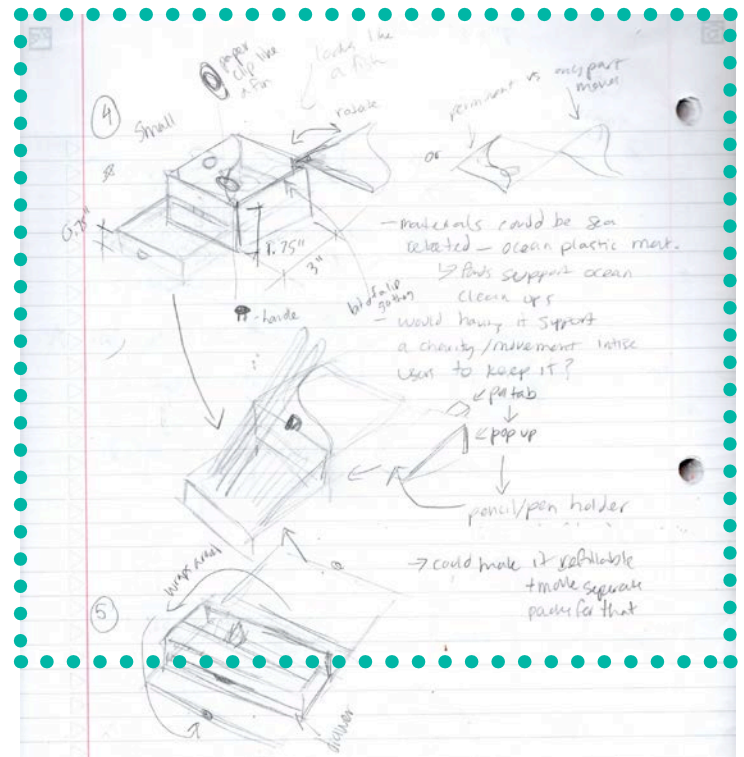 paper
clip like
a fin
looks like
a fish
4
Small
rotate
permanent vs only part
moves
or
0.75"
1.75"
3"
- materials could be sea
related - ocean plastic mat.
↳ Parts support ocean
clean ups
- handle
- would having it support
a charity/movement intise
user to keep it?
pop up
pencil/pen holder
→ could make it refillable
+ make separate
packs for that
wraps around
5
drawer